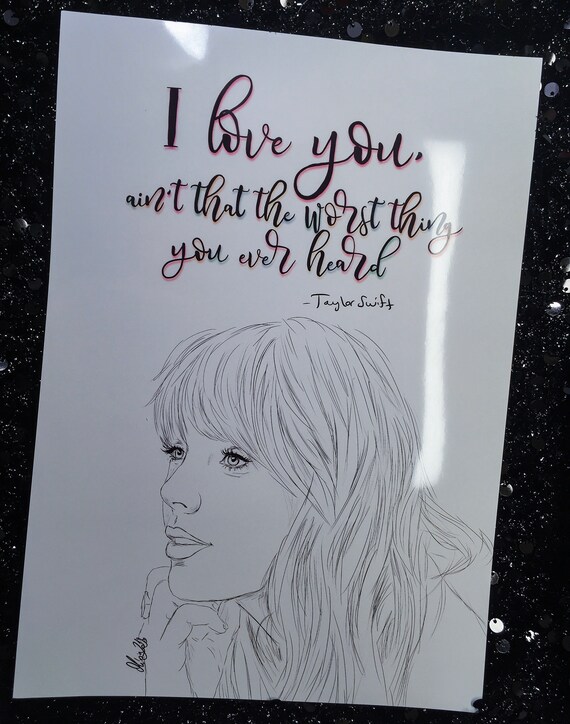 I love you,
ain't that the worst thing
you ever heard
-Taylor Swift